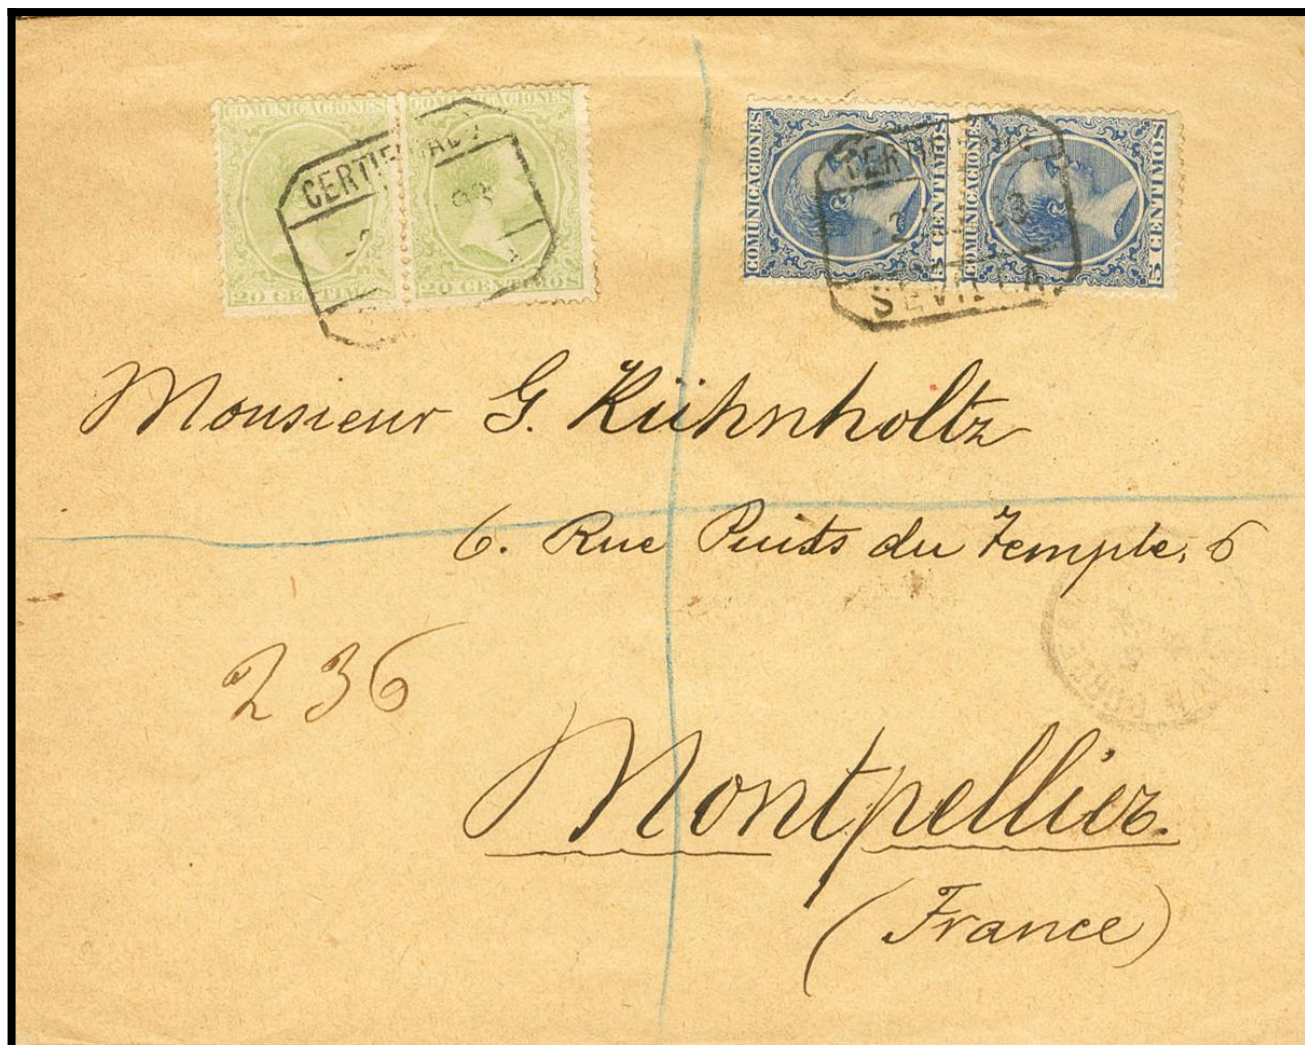 COMUNICACIONES COMUNICACIONES
20 CENTIMOS 20 CENTIMOS
CERTIFICADO
COMUNICACIONES 5 CENTIMOS COMUNICACIONES 5 CENTIMOS
SEVILLA
Monsieur G. Kühnholtz
6. Rue Puits du Temple, 6
236
Montpellier.
(France)